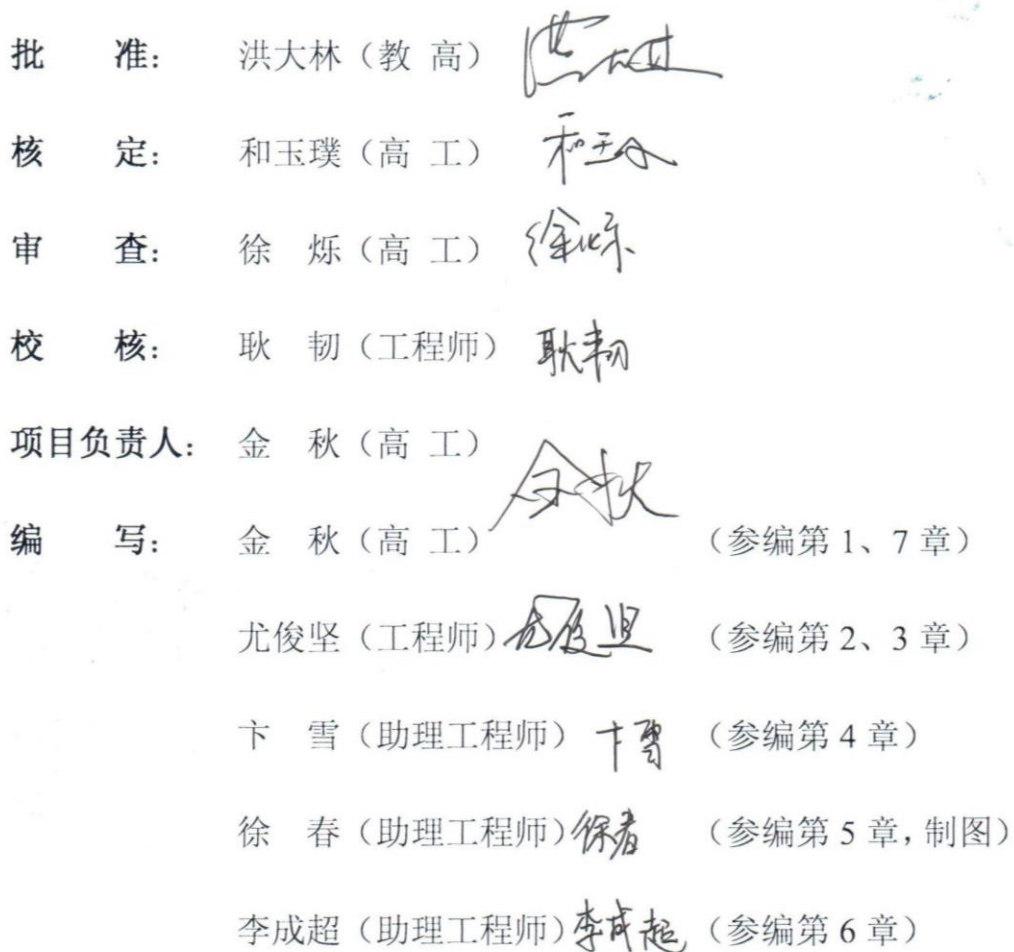 批 准: 洪大林（教 高） 洪大林
核 定: 和玉璞（高 工） 和玉璞
审 查: 徐 烁（高 工） 徐烁
校 核: 耿 韧（工程师） 耿韧
项目负责人: 金 秋（高 工）
编 写: 金 秋（高 工） 金秋 （参编第 1、7 章）
尤俊坚（工程师） 尤俊坚 （参编第 2、3 章）
卞 雪（助理工程师） 卞雪 （参编第 4 章）
徐 春（助理工程师） 徐春 （参编第 5 章，制图）
李成超（助理工程师） 李成超 （参编第 6 章）